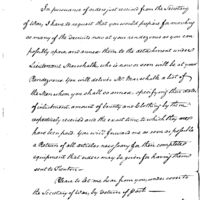 In pursuance of orders just received from the Secretary
of War, I have to request that you would prepare for marching
as many of the recruits now at your rendezvous as you can
possibly spare and annex them to the detachment under
Lieutenant Marschalk who is now or soon will be at your
Rendezvous. You will deliver Mr. Marschalk a list of
the men whom you shall so annex, specifying their dates
of inlistment, amount of bounty and Clothing by them
respectively received and the exact time to which they
have been paid. You will forward me as soon as possible
a Return of all articles necessary for their complete
equipment that orders may be given for having them
sent to Trenton.
Please to let me hear from you under cover to
the Secretary of War, by return of post.